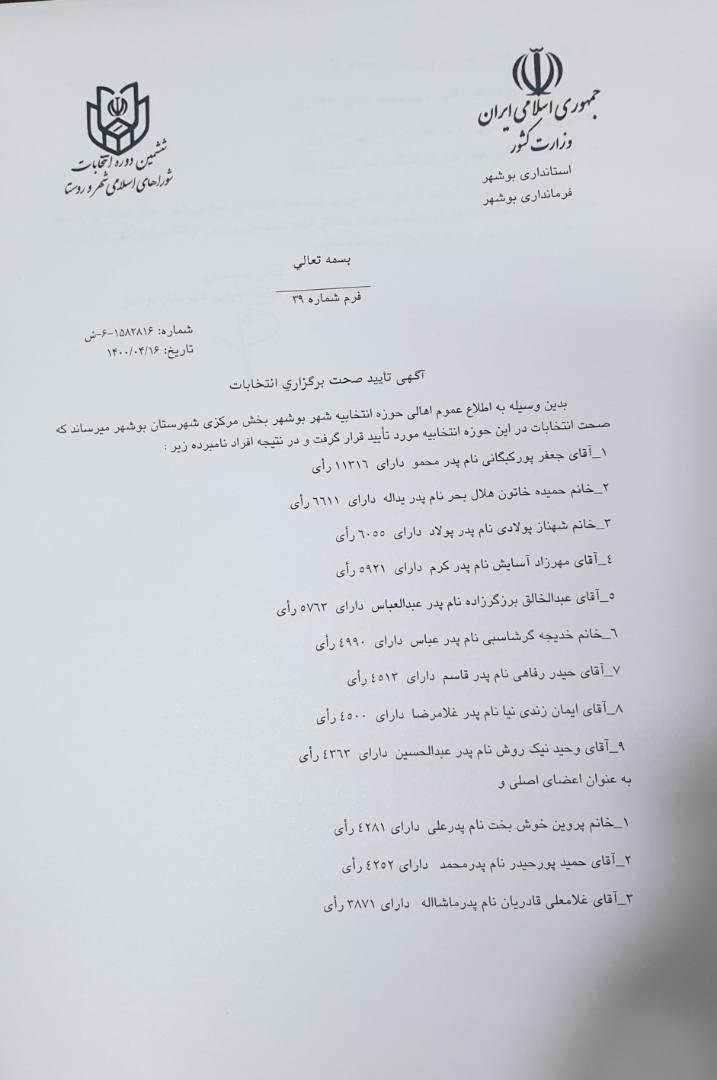 جمهوری اسلامی ایران
وزارت کشور
استانداری بوشهر
فرمانداری بوشهر
ششمین دوره انتخابات
شوراهای اسلامی شهر و روستا
بسمه تعالي
فرم شماره ۳۹
شماره: ۱۵۸۲۸۱۶-۶-ش
تاریخ: ۱۴۰۰/۰۴/۱۶
آگهی تایید صحت برگزاري انتخابات
بدین وسیله به اطلاع عموم اهالی حوزه انتخابیه شهر بوشهر بخش مرکزی شهرستان بوشهر میرساند که
صحت انتخابات در این حوزه انتخابیه مورد تأیید قرار گرفت و در نتیجه افراد نامبرده زیر :
۱_آقای جعفر پورکبگانی نام پدر محمو دارای ۱۱۳۱٦ رأی
۲_خانم حمیده خاتون هلال بحر نام پدر یداله دارای ٦٦۱۱ رأی
۳_خانم شهناز پولادی نام پدر پولاد دارای ٦۰۵۵ رأی
٤_آقای مهرزاد آسایش نام پدر کرم دارای ۵۹۲۱ رأی
۵_آقای عبدالخالق برزگرزاده نام پدر عبدالعباس دارای ۵۷٦۳ رأی
٦_خانم خدیجه گرشاسبی نام پدر عباس دارای ٤۹۹۰ رأی
۷_آقای حیدر رفاهی نام پدر قاسم دارای ٤۵۱۳ رأی
۸_آقای ایمان زندی نیا نام پدر غلامرضا دارای ٤۵۰۰ رأی
۹_آقای وحید نیک روش نام پدر عبدالحسین دارای ٤۳٦۳ رأی
به عنوان اعضای اصلی و
۱_خانم پروین خوش بخت نام پدرعلی دارای ٤۲۸۱ رأی
۲_آقای حمید پورحیدر نام پدرمحمد دارای ٤۲۵۲ رأی
۳_آقای غلامعلی قادریان نام پدرماشااله دارای ۳۸۷۱ رأی